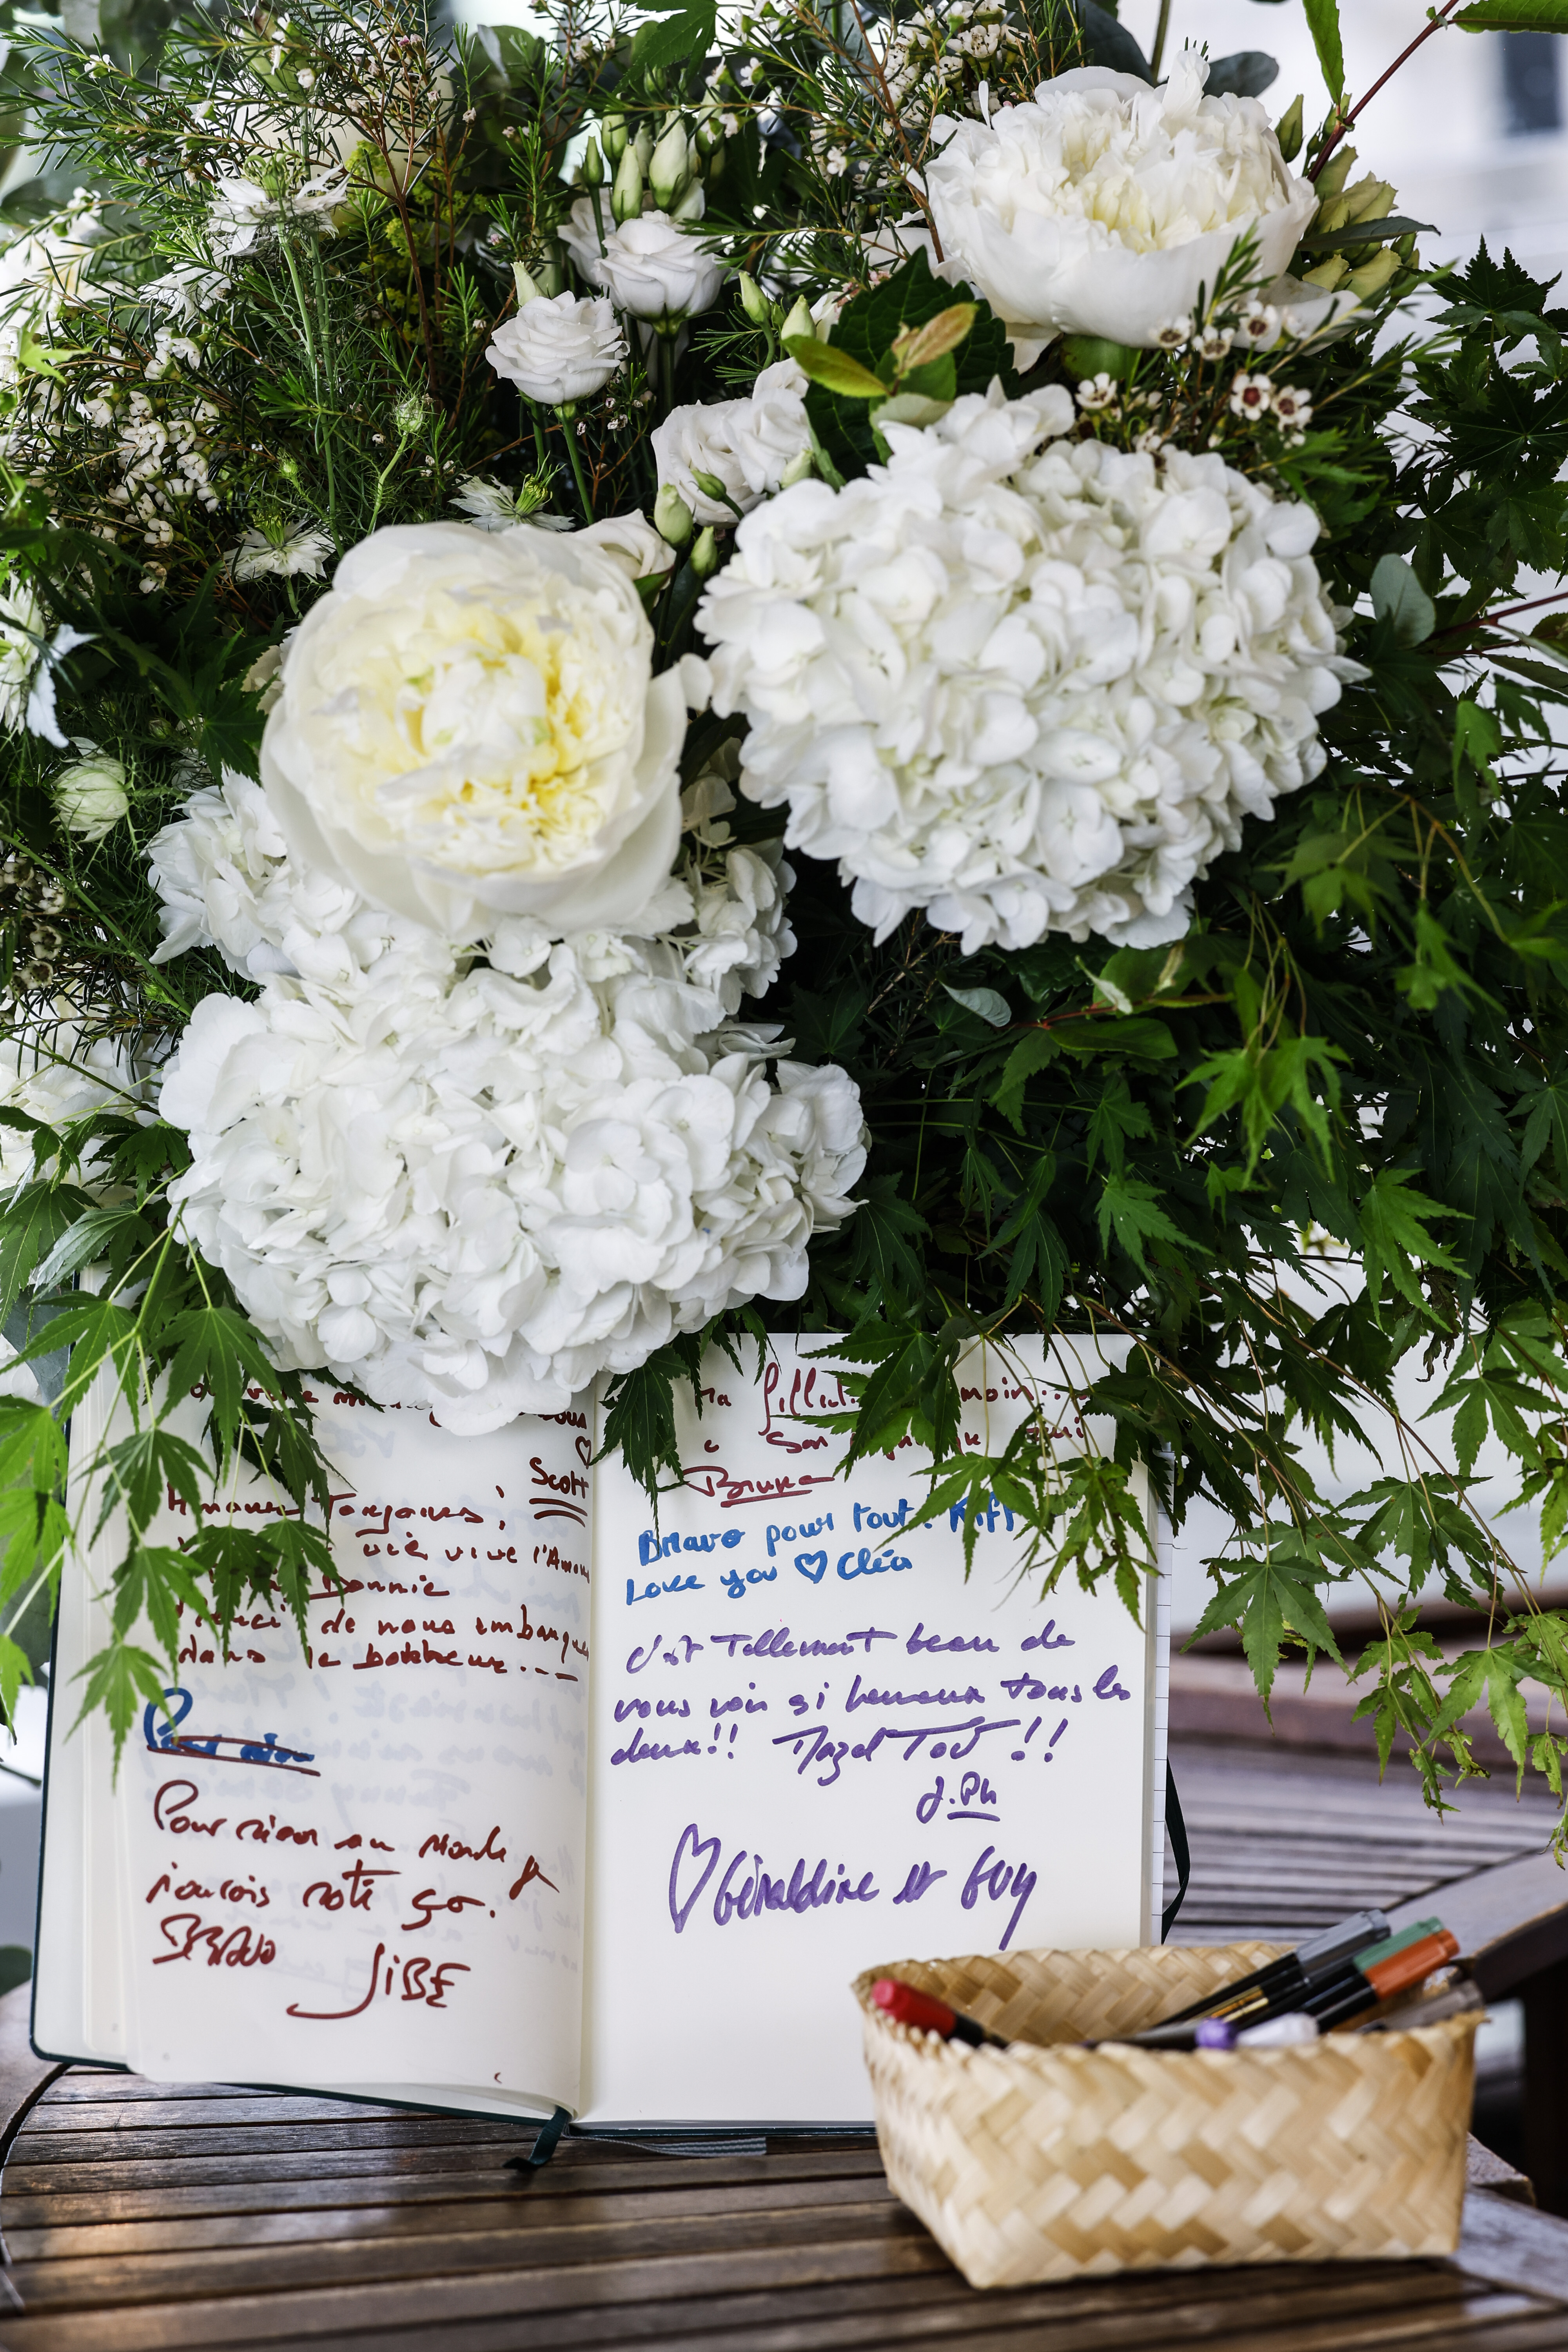 vous
♡
Scott
Amour Toujours !
vie, vive l'Amour
Bonnie
Merci de nous embarquer
dans le bonheur...
Pour rien
Pour rien au monde je
n'aurais raté ça.
BRAVO
JiBE
la
moin...
Son
Bruno
Bravo pour tout. Kiff
Love you ♡ Cléa
C'est Tellement beau de
vous voir si heureux tous les
deux!! Mazel Tov !!
J.Ph
♡ Géraldine et Guy